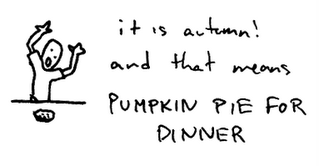 it is autumn!
and that means
PUMPKIN PIE FOR
DINNER